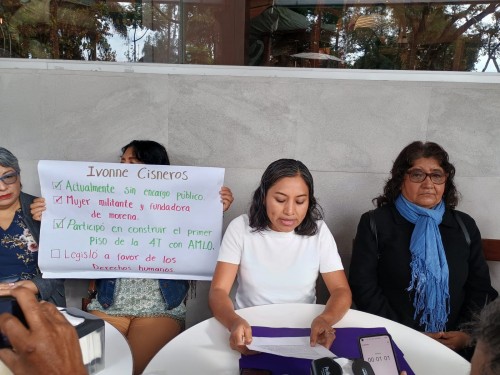 Ivonne Cisneros
Actualmente sin encargo público.
Mujer militante y fundadora
de morena.
Participó en construir el primer
Piso de la 4T con AMLO.
Legisló a favor de los
Derechos humanos
00:01:01